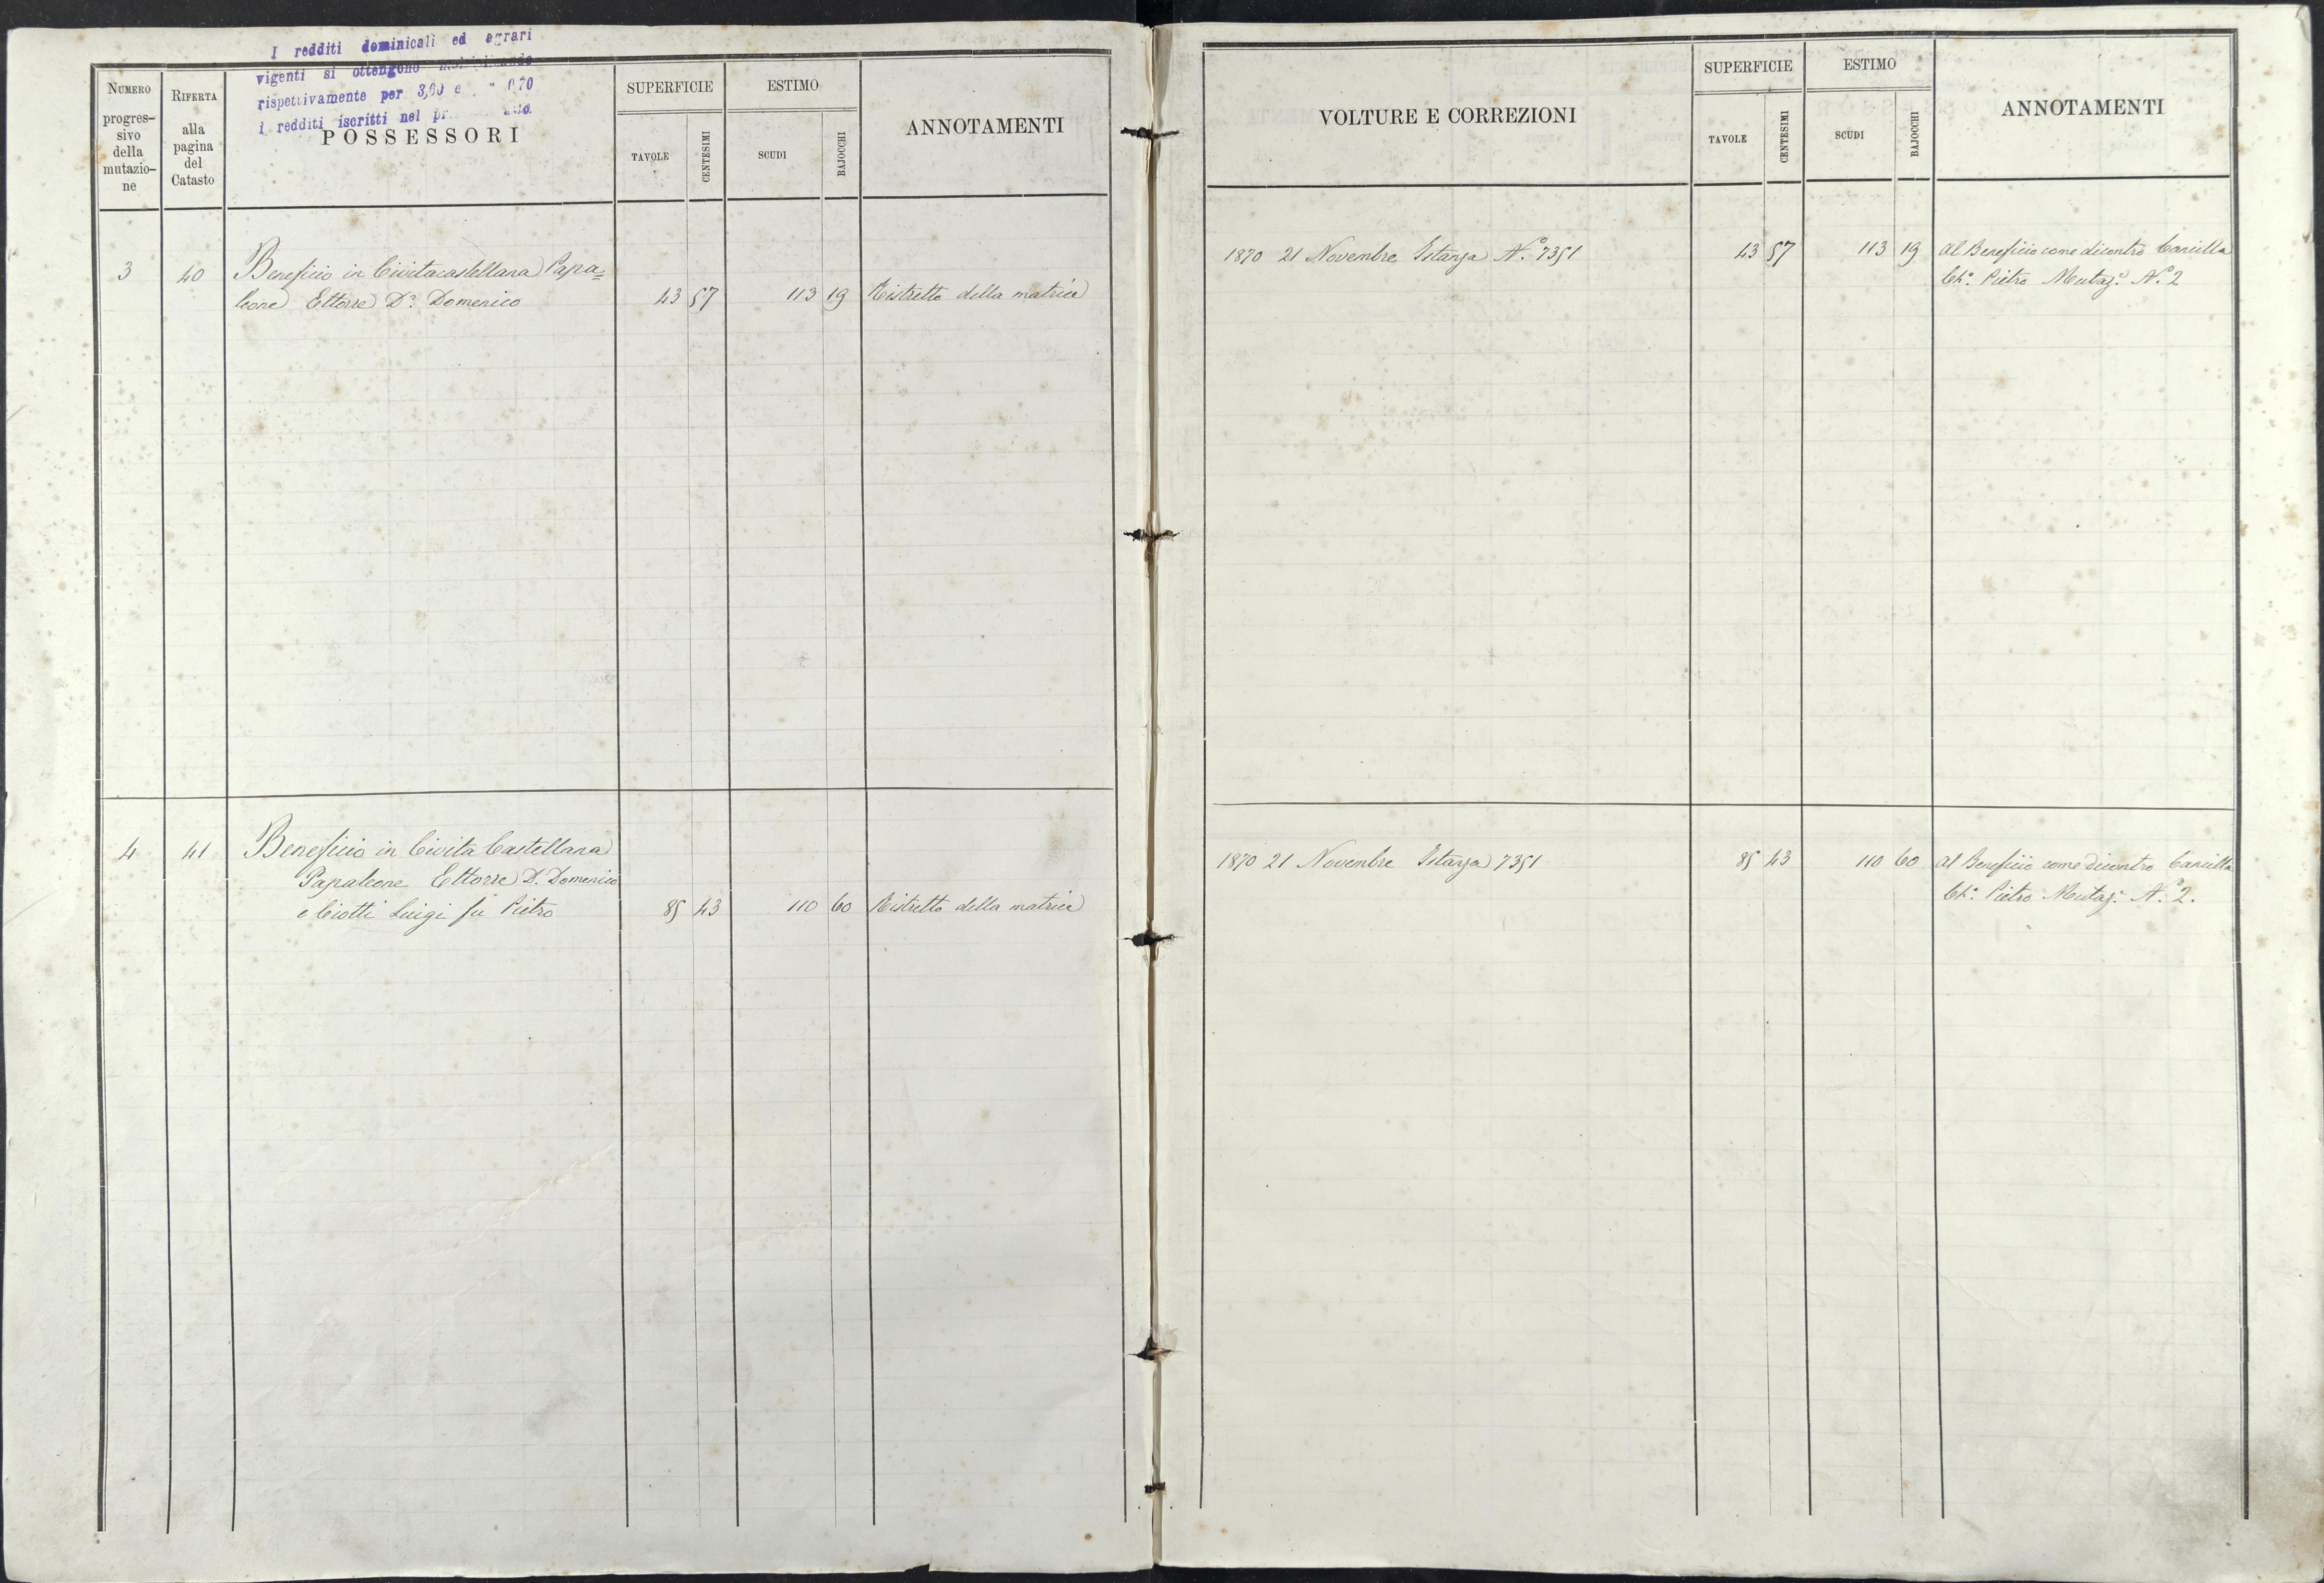 I redditi dominicali ed agrari
vigenti si ottengono
rispettivamente per 3,60 e 0,70
i redditi iscritti nel
NUMERO
progres-
sivo
della
mutazio-
ne
RIFERTA
alla
pagina
del
Catasto
POSSESSORI
SUPERFICIE
TAVOLE
CENTESIMI
ESTIMO
SCUDI
BAJOCCHI
ANNOTAMENTI
3 40 Beneficio in Civitacastellana Papa=
leone Ettorre D. Domenico 43 57 113 19 Ristretto della matrice
4 41 Beneficio in Civita Castellana
Papaleone Ettorre D. Domenico
e Ciotti Luigi fu Pietro 85 43 110 60 Ristretto della matrice
VOLTURE E CORREZIONI
SUPERFICIE
TAVOLE
CENTESIMI
ESTIMO
SCUDI
BAJOCCHI
ANNOTAMENTI
1870 21 Novembre Istanza N.° 7351 43 57 113 19 Al Beneficio come dicontro
Pietro Mutaz. N.° 2
1870 21 Novembre Istanza 7351 85 43 110 60 Al Beneficio come dicontro
Pietro Mutaz. N.° 2.